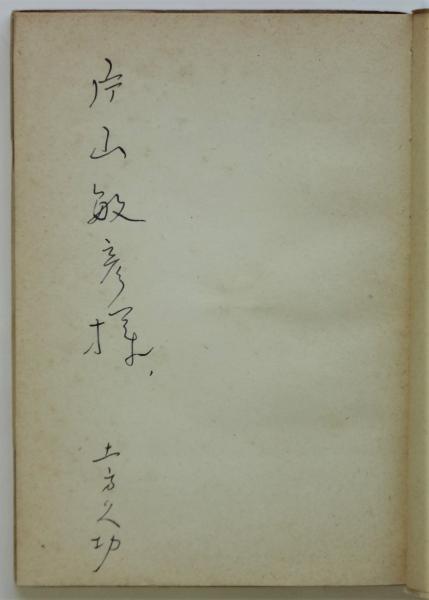 片山敏彦様、
土方久功